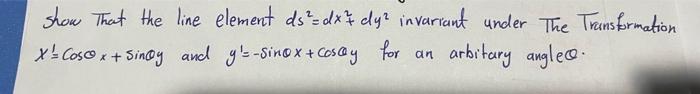 show That the line element ds²=dx²+dy² invariant under The Transformation
x'=Cosθx+Sinθy and y'=-Sinθx+Cosθy for an arbitary angleθ.